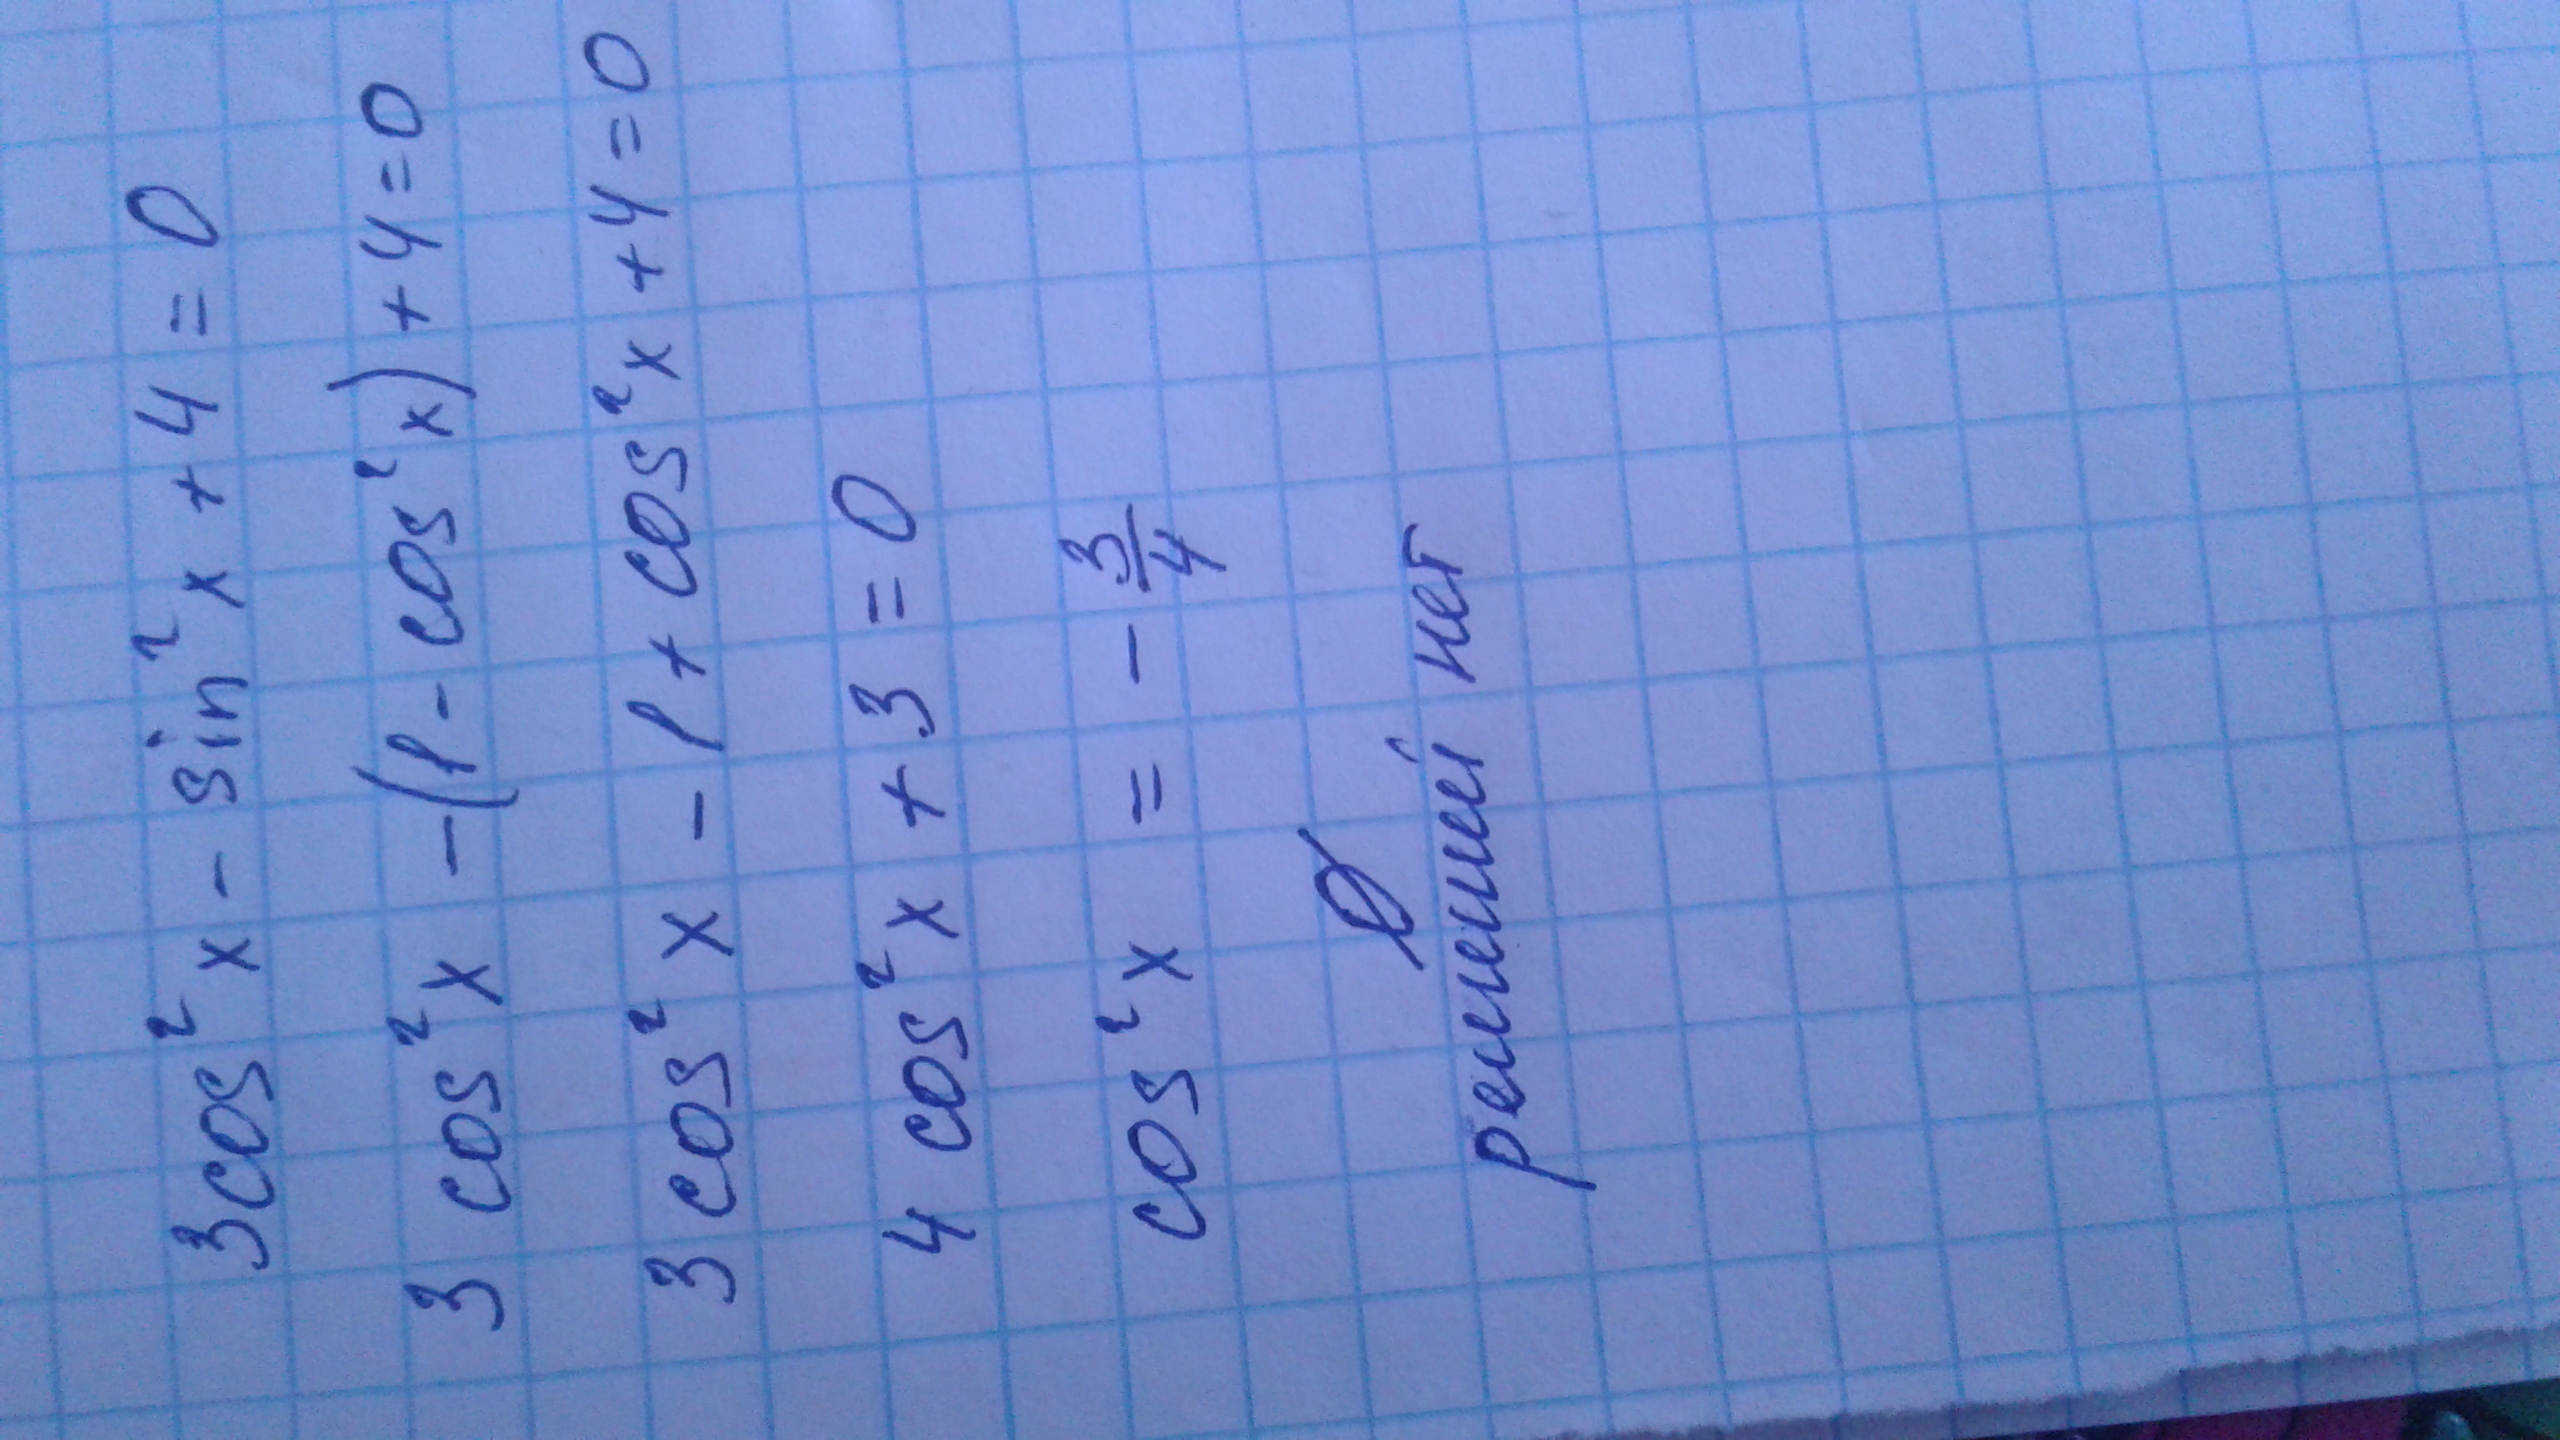 3cos²x - sin²x + 4 = 0
3 cos²x - (1 - cos²x) + 4 = 0
3 cos²x - 1 + cos²x + 4 = 0
4 cos²x + 3 = 0
cos²x = - 3/4
∅
решений нет